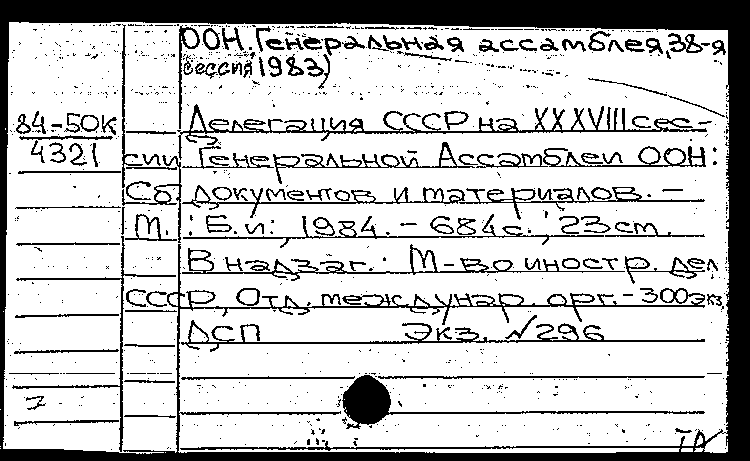 ООН. Генеральная ассамблея, 38-я
сессия, 1983)
84-50К
4321
Делегация СССР на XXXVIII сес-
сии Генеральной Ассамблеи ООН:
Сб. документов и материалов. –
М. : Б.и., 1984. – 684с.; 23 см.
В надзаг.: М-во иностр. дел
СССР, Отд. междунар. орг. – 300 экз.
ДСП Экз. №296